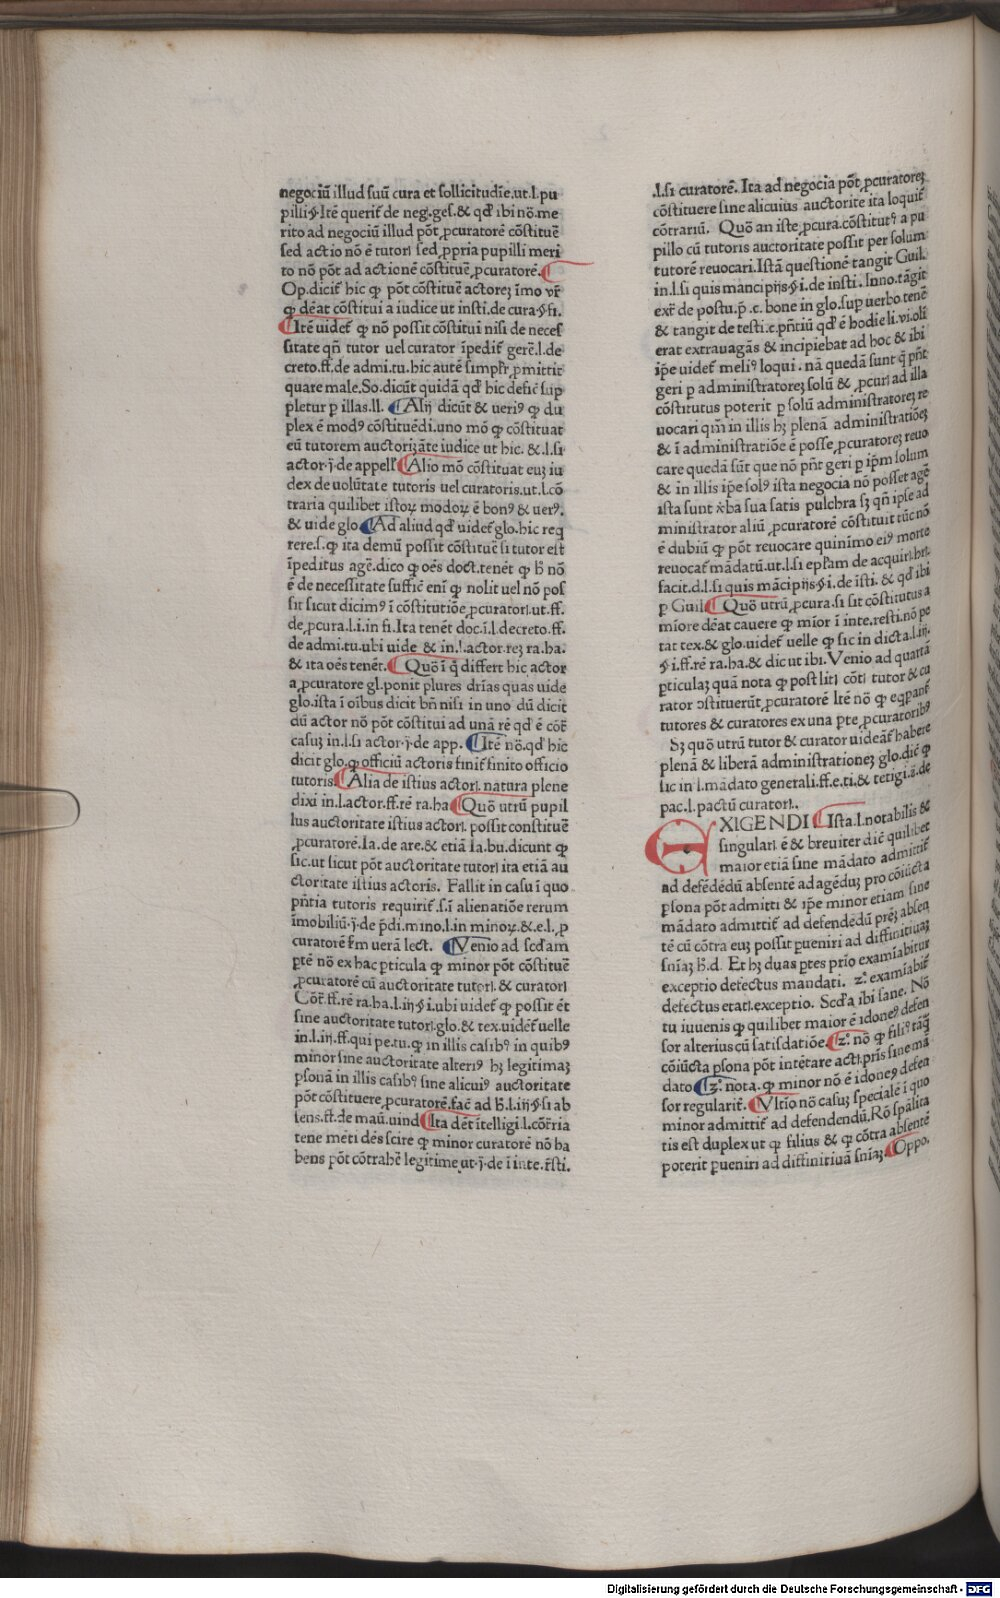 negociū illud suū cura et sollicitudīe.ut.l.pu
pilli.§.Itē querit᷑ de neg.ges.& qd᷑ ibi nō.me
rito ad negociū illud pōt ꝓcuratorē cōstituē
sed actio nō ē tutori sed ꝓpria pupilli meri
to nō pōt ad actionē cōstituē ꝓcuratorē.
Op.dicit᷑ hic ꝙ pōt cōstituē actoreꝫ īmo vr᷑
ꝙ dēat cōstitui a iudice ut insti.de cura.§.fi.
Itē uidet᷑ ꝙ nō possit cōstitui nisi de neces
sitate qn̄ tutor uel curator īpedit᷑ gerē.l.de
creto.ff.de admi.tu.hic autē simplr̄ ꝑmittit᷑
quare male.So.dicūt quidā qd᷑ hic deficē sup
pletur ꝑ illas.ll. Alij dicūt & ueriꝰ ꝙ du
plex ē modꝰ cōstituēdi.uno mō ꝙ cōstituat
eū tutorem auctorizāte iudice ut hic.&.l.si
actor.j.de appell᷑ Alio mō cōstituat euꝫ iu
dex de uolūtate tutoris uel curatoris.ut.l.cō
traria quilibet istoꝝ modoꝝ ē bonꝰ & uerꝰ.
& uide glo. Ad aliud qd᷑ uidet᷑ glo.hic req
rere.s.ꝙ ita demū possit cōstituē si tutor est
īpeditus agē.dico ꝙ oēs doct.tenēt ꝙ h̄ nō
ē de necessitate suffic̄ eni᷑ ꝙ nolit uel nō pos
sit sicut dicimꝰ ī cōstitutiōe ꝓcuratoꝝ.ut.ff.
de ꝓcura.l.i.in fi.Ita tenēt doc.ī.l.decreto.ff.
de admi.tu.ubi uide & in.l.actor.reꝫ ra.ha.
& ita oēs tenēt. Quō ī q̄ differt hic actor
a ꝓcuratore gl.ponit plures dr̄ias quas uide
glo.ista ī oībus dicit bn̄ nisi in uno dū dicit
dū actor nō pōt cōstitui ad unā rē qd᷑ ē cōt᷑
casuꝫ in.l.si actor.j.de app. Itē nō.qd᷑ hic
dicit glo.ꝙ officiū actoris finit᷑ finito officio
tutoris Alia de istius actoꝝ natura plene
dixi in.l.actor.ff.rē ra.ha Quō utrū pupil
lus auctoritate istius actoꝝ possit constituē
ꝓcuratorē.Ia.de are.& etiā Ia.bu.dicunt ꝙ
sic.ut sicut pōt auctoritate tutoꝝ ita etiā au
ctoritate istius actoris. Fallit in casu ī quo
pn̄tia tutoris requirit᷑.s.ī alienatiōe rerum
īmobiliū.j.de p̄di.mino.l.in minoꝝ.&.e.l.ꝓ
curatorē fm uerā lect. Venio ad scd᷑am
ꝑtē nō ex hac ꝑticula ꝙ minor pōt cōstituē
ꝓcuratorē cū auctoritate tutoꝝ & curatoꝝ
Cōt᷑.ff.rē ra.ha.l.iij.§.i.ubi uidet᷑ ꝙ possit ēt
sine auctoritate tutoꝝ.glo.& tex.uidēt᷑ uelle
in.l.iij.ff.qui pe.tu.ꝙ in illis casibꝰ in quibꝰ
minor sine auctoritate alteriꝰ hꝫ legitimaꝫ
ꝑsonā in illis casibꝰ sine alicuiꝰ auctoritate
pōt cōstituere ꝓcuratorē.fac̄ ad h̄.l.iij.§.si ab
sens.ff.de maū.uind Ita dēt ītelligi.l.cōt᷑ria
tene mēti dēs scire ꝙ minor curatorē nō ha
bens pōt cōtrahē legitime ut.j.de ī inte.r̄sti.
.l.si curatorē. Ita ad negocia pōt ꝓcuratoreꝫ
cōstituere sine alicuius auctorite ita loquit᷑
cōtrariū. Quō an iste ꝓcura.cōstitutꝰ a pu
pillo cū tutoris auctoritate possit per solum
tutorē reuocari.Istā questionē tangit Guil.
in.l.si quis mancipijs.§.i.de insti.Inno.tāgit
ext᷑ de postu.p̄.c.bone in glo.sup uerbo tenē
& tangit de testi.c.pn̄tiū qd᷑ ē hodie li.vi.oli᷑
erat extrauagās & incipiebat ad hoc & ibi
ip̄e uidet᷑ meliꝰ loqui.nā quedā sunt q̄ pn̄t
geri ꝑ administratoreꝫ solū & ꝓcur᷑ ad illa
cōstitutus poterit ꝑ solū administratoreꝫ re
uocari qm̄ in illis hꝫ plenā administratiōeꝫ
& ī administratiōe ē posse ꝓcuratoreꝫ reuo
care quedā sūt que nō pn̄t geri ꝑ ip̄m solum
& in illis ip̄e solꝰ ista negocia nō posset agē
ista sunt v᷑ba sua satis pulchra sꝫ qn̄ ipse ad
ministrator aliū ꝓcuratorē cōstituit tūc nō
ē dubiū ꝙ pōt reuocare quinīmo eiꝰ morte
reuocat᷑ mādatū.ut.l.si ep̄lam de acquir.her.
facit.d.l.si quis mācipijs.§.i.de īsti.& qd᷑ ibi
ꝑ Guil. Quō utrū ꝓcura.si sit cōstitutus a
mīore dēat cauere ꝙ mīor ī inte.resti.nō pe
tat tex.& glo.uidet᷑ uelle ꝙ sic in dicta.l.iij.
§.i.ff.rē ra.ha.& dic ut ibi.Venio ad quartā
ꝑticulaꝫ quā nota ꝙ post lit᷑ cōt᷑ tutor & cu
rator ɔstituerūt ꝓcuratorē Itē nō ꝙ eqꝑant᷑
tutores & curatores ex una ꝑte ꝓcuratoribꝰ
Sꝫ quō utrū tutor & curator uideāt᷑ habere
plenā & liberā administrationeꝫ glo.dic̄ ꝙ
sic in l.mādato generali.ff.e.ti.& tetigi.ā.de
pac.l.pactū curatoꝝ.
EXIGENDI Ista.l.notabilis &
singularꝫ ē & breuiter dic̄ quilibet
maior etiā sine mādato admittit᷑
ad defēdēdū absentē ad agēduꝫ pro cōiūcta
ꝑsona pōt admitti & ip̄e minor etiam sine
mādato admittit᷑ ad defendēdū pr̄eꝫ absen
tē cū cōtra euꝫ possit ꝑueniri ad diffinitiuaꝫ
sn̄iaꝫ h̄.d. Et hꝫ duas ꝑtes prīo examiabitur
exceptio defectus mandati. zͦ. examīabit᷑
defectus etatꝫ.exceptio. Scd᷑a ibi sane. Nō
tu iuuenis ꝙ quilibet maior ē idoneꝰ defen
sor alterius cū satisdatiōe. zͦ. nō ꝙ filiꝰ tāq̄
cōiūcta ꝑsona pōt intētare actꝫ.pr̄is sine mā
dato zͦ. nota.ꝙ minor nō ē idoneꝰ defen
sor regularit᷑. Vltīo nō casuꝫ specialē ī quo
minor admittit᷑ ad defendendū.Rō sp̄alita
tis est duplex ut ꝙ filius & ꝙ cōtra absentē
poterit ꝑueniri ad diffinitiuā sn̄iaꝫ. Oppo.
Digitalisierung gefördert durch die Deutsche Forschungsgemeinschaft - DFG